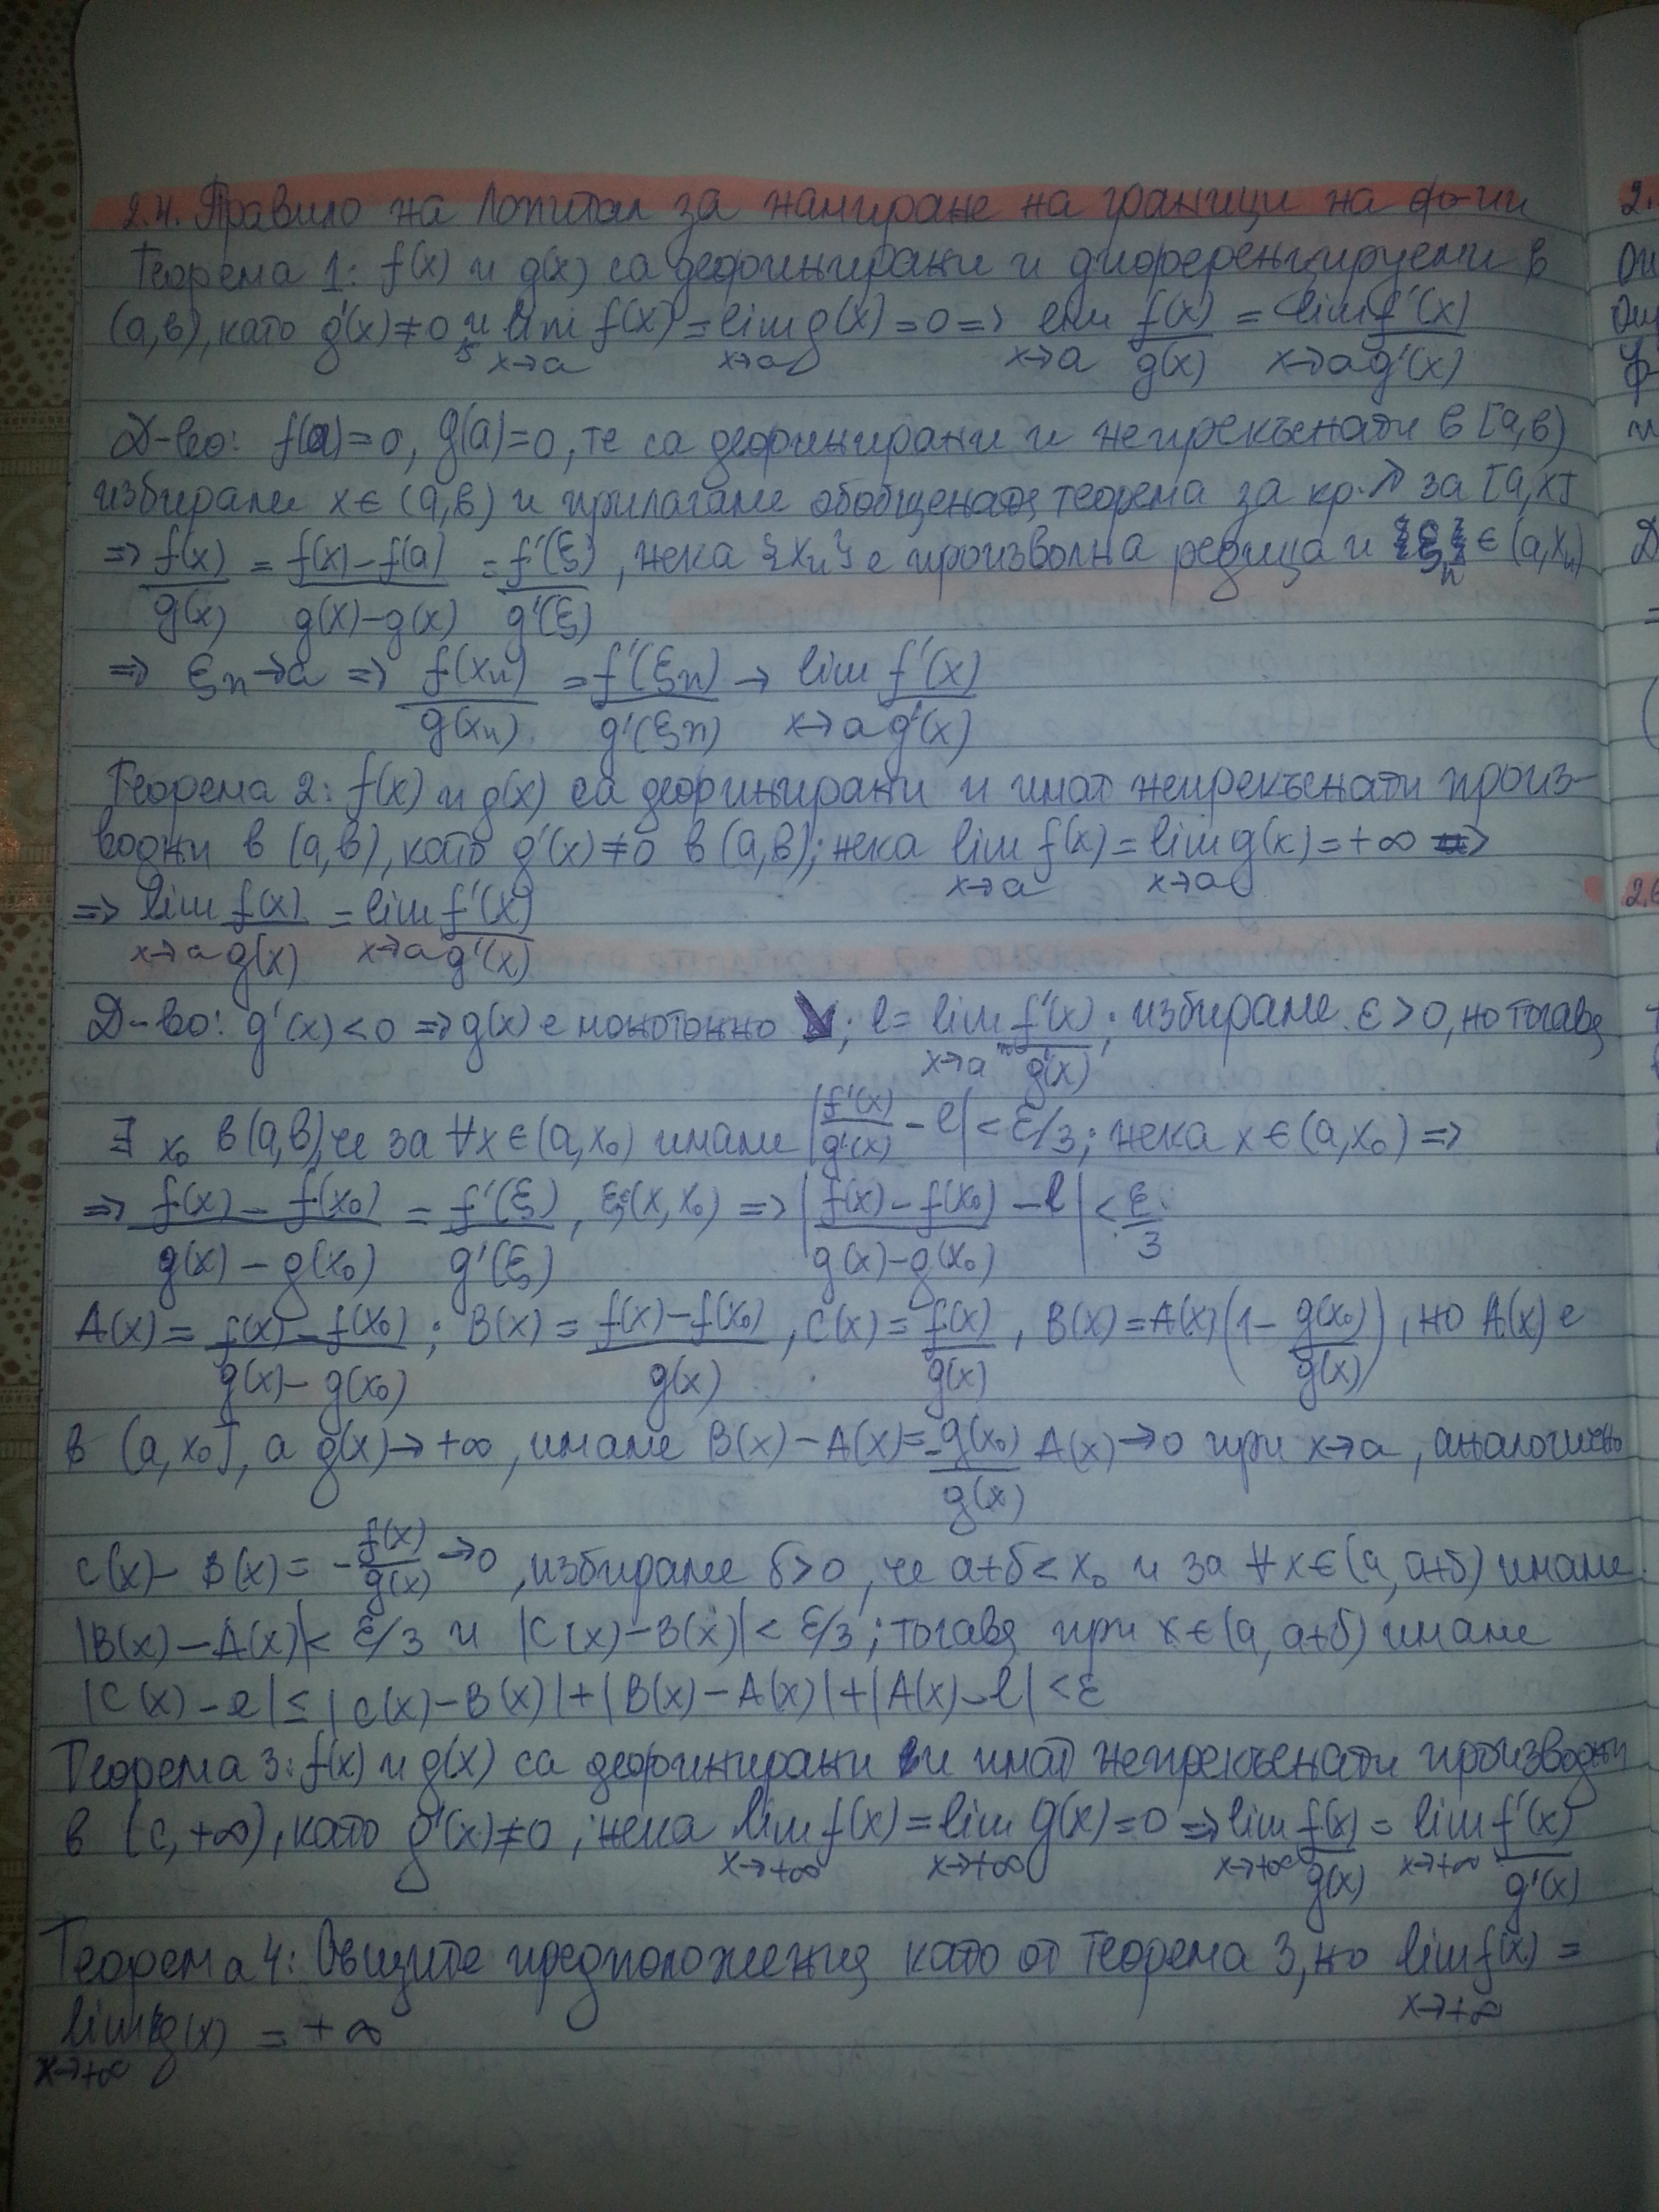 2.4. Правило на Лопитал за намиране на граници на ф-ии
Теорема 1: f(x) и g(x) са дефинирани и диференцируеми в
(a,b), като g'(x)≠0 и lim_{x→a} f(x) = lim_{x→a} g(x) = 0 => lim_{x→a} f(x)/g(x) = lim_{x→a} f'(x)/g'(x)
Д-во: f(a)=0, g(a)=0, те са дефинирани и непрекъснати в [a,b)
избираме x∈(a,b) и прилагаме обобщената теорема за кр.↗ за [a,x]
=> f(x)/g(x) = (f(x)-f(a))/(g(x)-g(x)) = f'(ξ)/g'(ξ), нека {x_n} е произволна редица и ξ_n ∈ (a,x_n)
=> ξ_n→a => f(x_n)/g(x_n) = f'(ξ_n)/g'(ξ_n) → lim_{x→a} f'(x)/g'(x)
Теорема 2: f(x) и g(x) са дефинирани и имат непрекъснати произ-
водни в (a,b), като g'(x)≠0 в (a,b); нека lim_{x→a} f(x) = lim_{x→a} g(x) = +∞ =>
=> lim_{x→a} f(x)/g(x) = lim_{x→a} f'(x)/g'(x)
Д-во: g'(x)<0 => g(x) е монотонно ↘; l = lim_{x→a} f'(x)/g'(x); избираме ε>0, но тогава
∃ x₀ в (a,b), че за ∀x∈(a,x₀) имаме |f'(x)/g'(x) - l| < ε/3; нека x∈(a,x₀) =>
=> (f(x) - f(x₀))/(g(x) - g(x₀)) = f'(ξ)/g'(ξ), ξ∈(x,x₀) => |(f(x)-f(x₀))/(g(x)-g(x₀)) - l| < ε/3
A(x) = (f(x)-f(x₀))/(g(x)-g(x₀)); B(x) = (f(x)-f(x₀))/g(x), C(x) = f(x)/g(x), B(x) = A(x)(1 - g(x₀)/g(x)), но A(x) е
в (a,x₀], а g(x)→+∞, имаме B(x)-A(x) = -g(x₀)/g(x) A(x)→0 при x→a, аналогично
C(x)-B(x) = -f(x)/g(x) →0, избираме δ>0, че a+δ<x₀ и за ∀x∈(a,a+δ) имаме
|B(x)-A(x)| < ε/3 и |C(x)-B(x)| < ε/3; тогава при x∈(a,a+δ) имаме
|C(x)-l| ≤ |C(x)-B(x)|+|B(x)-A(x)|+|A(x)-l| < ε
Теорема 3: f(x) и g(x) са дефинирани и имат непрекъснати производни
в (c,+∞), като g'(x)≠0; нека lim_{x→+∞} f(x) = lim_{x→+∞} g(x) = 0 => lim_{x→+∞} f(x)/g(x) = lim_{x→+∞} f'(x)/g'(x)
Теорема 4: Общите предположения като от теорема 3, но lim_{x→+∞} f(x) =
lim_{x→+∞} g(x) = +∞